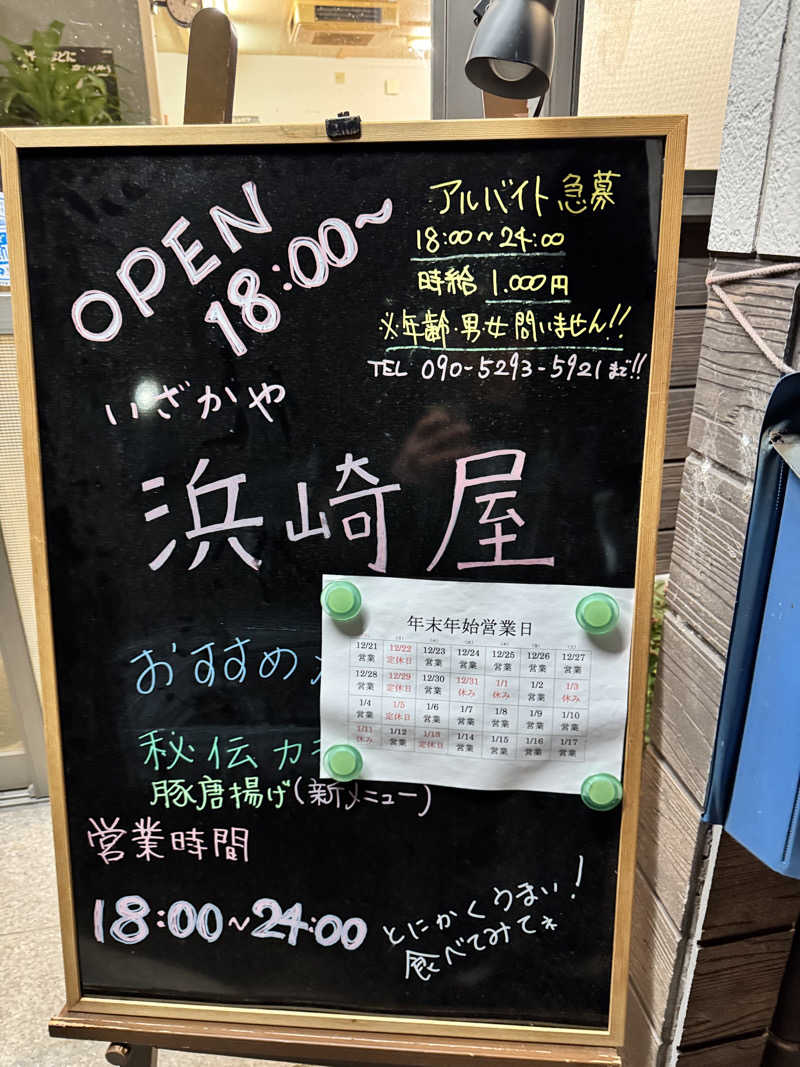 OPEN
18:00～
アルバイト急募
18:00～24:00
時給 1.000円
※年齢・男女問いません!!
TEL 090-5293-5921まで!!
いざかや
浜崎屋
おすすめ
秘伝カラ
豚唐揚げ(新メニュー)
営業時間
18:00～24:00
とにかくうまい!
食べてみてネ
年末年始営業日
12/21 12/22 12/23 12/24 12/25 12/26 12/27
営業 定休日 営業 営業 営業 営業 営業
12/28 12/29 12/30 12/31 1/1 1/2 1/3
営業 定休日 営業 休み 休み 営業 休み
1/4 1/5 1/6 1/7 1/8 1/9 1/10
営業 定休日 営業 営業 営業 営業 営業
1/11 1/12 1/13 1/14 1/15 1/16 1/17
休み 営業 定休日 営業 営業 営業 営業